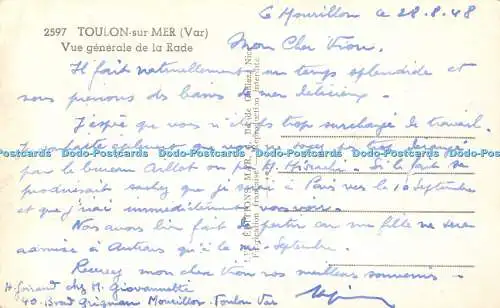 Le Mourillon le 28.8.48
2597 TOULON-sur MER (Var)
Vue générale de la Rade
Mon Cher
Il fait naturellement un temps splendide et
nous prenons des bains de mer délicieux.
J'espère que vous n'êtes trop surchargé de travail.
Je souhaite également que vous ne soyez pas trop dérangé
Postcards Dodo-Postcards Dodo-Postcards Dodo-Postcards Dodo-Postcards Dodo-Postcards
par le bureau ou par M. Si le fait se
produisait sachez que je serai à Paris vers le 10 Septembre
et que j'irai immédiatement vous voir.
Nous avons bien fait de partir car ma fille ne sera
admise à qu'à la mi-Septembre.
Recevez mon cher nos meilleurs souvenirs
chez M. Giovannetti
40. Bould Grignan Mourillon. Toulon Var
LES ÉDITIONS
Reproduction interdite